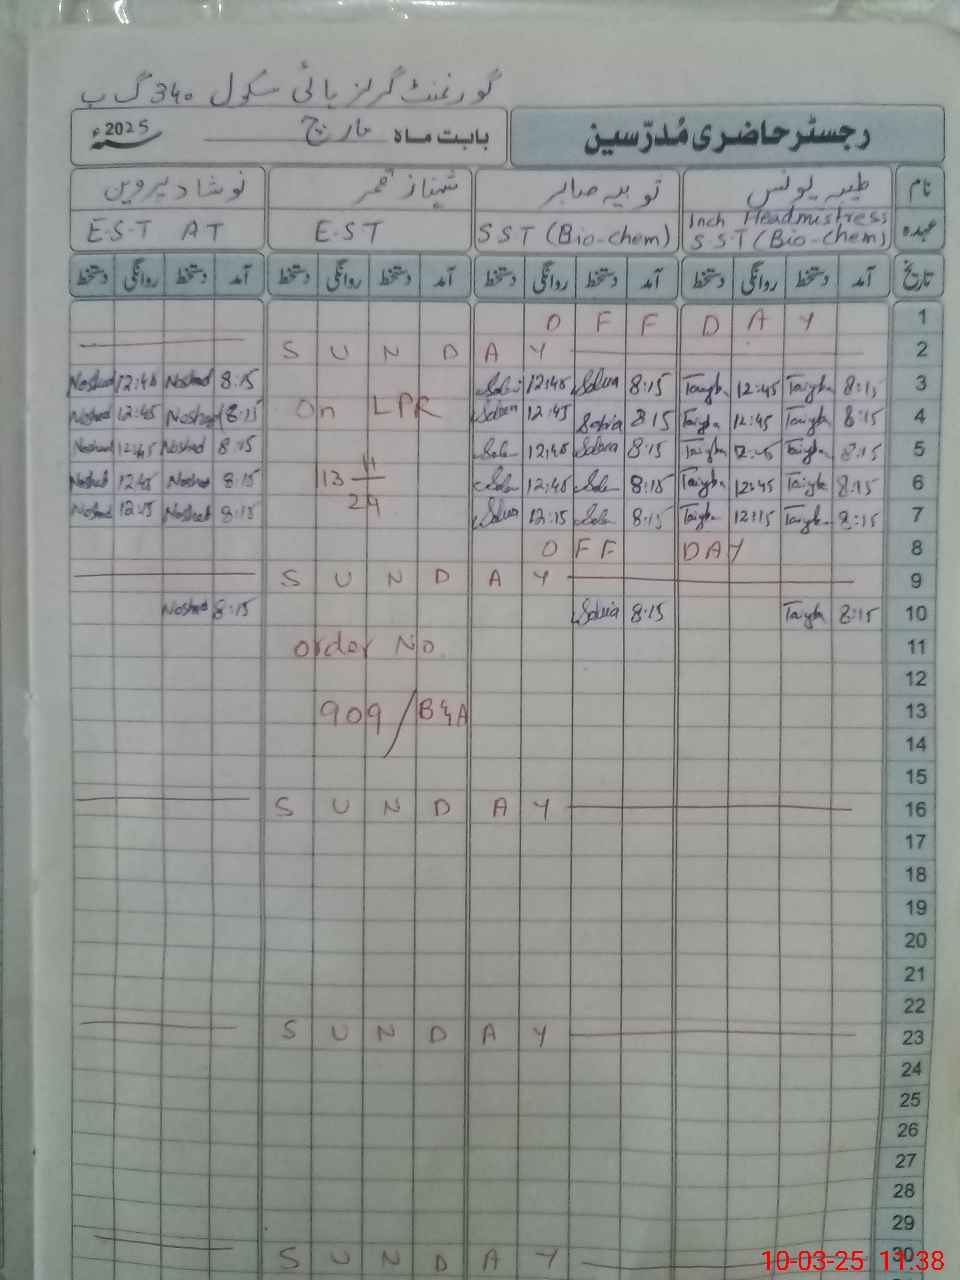 گورنمنٹ گرلز ہائی سکول 340 گ ب
رجسٹر حاضری مُدرّسین بابت ماہ مارچ 2025ء
نام طیبہ یونس ثوبیہ صابر شہناز قمر نوشاد پروین
عہدہ Inch Headmistress SST (Bio-chem) SST (Bio-chem) E.ST E.S.T AT
تاریخ آمد دستخط روانگی دستخط آمد دستخط روانگی دستخط آمد دستخط روانگی دستخط آمد دستخط روانگی دستخط
OFF DAY 1
SUNDAY 2
Noshad 12:45 Noshad 8:15 12:45 8:15 Taiyba 12:45 Taiyba 8:15 3
Noshad 12:45 Noshad 8:15 On LPR 12:45 8:15 Taiyba 12:45 Taiyba 8:15 4
Noshad 12:45 Noshad 8:15 12:45 8:15 Taiyba 12:45 Taiyba 8:15 5
Noshad 12:45 Noshad 8:15 13 11 24 12:45 8:15 Taiyba 12:45 Taiyba 8:15 6
Noshad 12:15 Noshad 8:15 12:15 8:15 Taiyba 12:15 Taiyba 8:15 7
OFF DAY 8
SUNDAY 9
Noshad 8:15 8:15 Taiyba 8:15 10
Order No. 11
12
909/B&A 13
14
15
SUNDAY 16
17
18
19
20
21
22
SUNDAY 23
24
25
26
27
28
29
SUNDAY 30
10-03-25 11:38